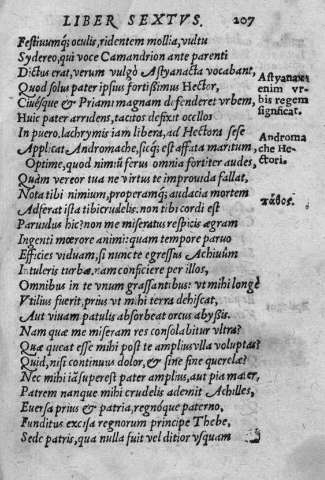 LIBER SEXTVS. 207
Festiuumq́; oculis, ridentem mollia, vultu
Sydereo, qui voce Camandrion ante parenti
Dictus erat, verum vulgò Astyanacta vocabant,
Quod solus pater ipsius fortissimus Hector,
Ciuésque & Priami magnam defenderet vrbem,
Huic pater arridens, tacitos defixit ocellos
In puero, lachrymis iam libera, ad Hectora sese
Applicat Andromache, sicq́; est affata maritum,
Optime, quod nimiũ ferus omnia fortiter audes,
Quàm vereor tua ne virtus te improuida fallat,
Nota tibi nimium, properamq́; audacia mortem
Adferat ista tibi crudelis. non tibi cordi est
Paruulus hic? non me miseratus respicis ægram
Ingenti mœrore animi: quam tempore paruo
Efficies viduam, si nunc te egressus Achiuûm
Intuleris turbæ, nam conficiere per illos,
Omnibus in te vnum grassantibus: vt mihi longè
Vtilius fuerit, prius vt mihi terra dehiscat,
Aut viuam patulis absorbeat orcus abyssis.
Nam quæ me miseram res consolabitur vltra?
Quæ queat esse mihi post te amplius vlla voluptas?
Quid, nisi continuus dolor, & sine fine querelæ?
Nec mihi iã superest pater amplius, aut pia mater,
Patrem nanque mihi crudelis ademit Achilles,
Euersa prius & patria, regnóque paterno,
Funditus excisa regnorum principe Thebe,
Sede patris, qua nulla fuit vel ditior vsquam
Astyanax
enim vr-
bis regem
significat.
Androma
che He-
ctori.
πάθος.